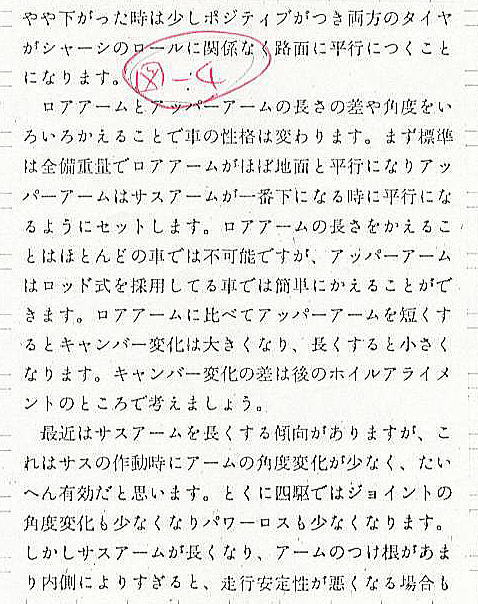 やや下がった時は少しポジティブがつき両方のタイヤ
がシャーシのロールに関係なく路面に平行につくこと
になります。 図-4
　ロアアームとアッパーアームの長さの差や角度をい
ろいろかえることで車の性格は変わります。まず標準
は全備重量でロアアームがほぼ地面と平行になりアッ
パーアームはサスアームが一番下になる時に平行にな
るようにセットします。ロアアームの長さをかえるこ
とはほとんどの車では不可能ですが、アッパーアーム
はロッド式を採用してる車では簡単にかえることがで
きます。ロアアームに比べてアッパーアームを短くす
るとキャンバー変化は大きくなり、長くすると小さく
なります。キャンバー変化の差は後のホイルアライメ
ントのところで考えましょう。
　最近はサスアームを長くする傾向がありますが、こ
れはサスの作動時にアームの角度変化が少なく、たい
へん有効だと思います。とくに四駆ではジョイントの
角度変化も少なくなりパワーロスも少なくなります。
しかしサスアームが長くなり、アームのつけ根があま
り内側によりすぎると、走行安定性が悪くなる場合も